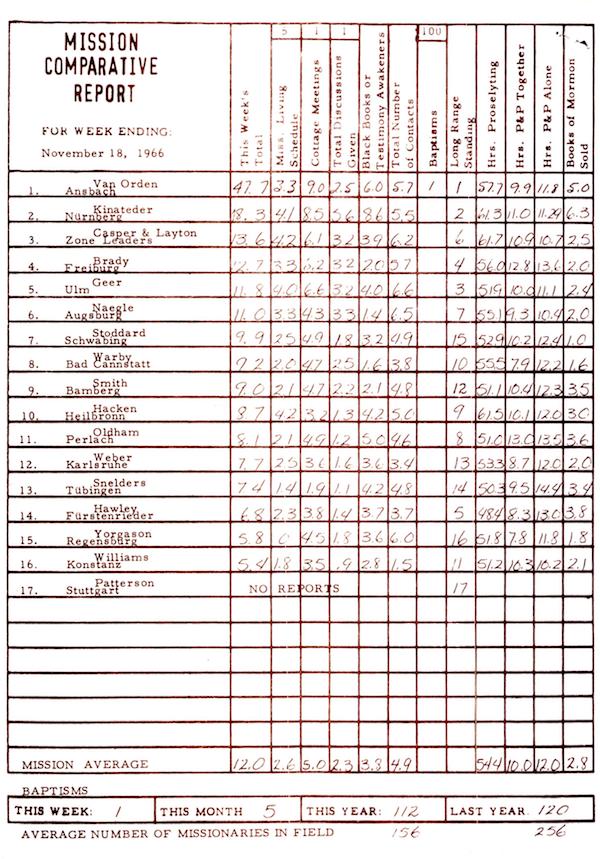 5 1 1 100
MISSION
COMPARATIVE
REPORT
FOR WEEK ENDING:
November 18, 1966
This Week's Total
Miss. Living Schedule
Cottage Meetings
Total Discussions Given
Black Books or Testimony Awakeners
Total Number of Contacts
Baptisms
Long Range Standing
Hrs. Proselyting
Hrs. P&P Together
Hrs. P&P Alone
Books of Mormon Sold
1. Van Orden Ansbach 47.7 3.3 9.0 2.5 6.0 5.7 1 1 57.7 9.9 11.8 5.0
2. Kinateder Nürnberg 18.3 4.1 8.5 5.6 8.6 5.5 2 61.3 11.0 11.29 6.3
3. Casper & Layton Zone Leaders 13.6 4.2 6.1 3.2 3.9 6.2 6 61.7 10.9 10.7 2.5
4. Brady Freiburg 12.7 3.3 6.2 3.2 2.0 5.7 4 56.0 12.8 13.6 2.0
5. Geer Ulm 11.8 4.0 6.6 3.2 4.0 6.6 3 51.9 10.0 11.1 2.4
6. Naegle Augsburg 11.0 3.3 4.3 3.3 1.4 6.5 7 55.1 9.3 10.4 2.0
7. Stoddard Schwabing 9.9 2.5 4.9 1.8 3.2 4.9 15 52.9 10.2 12.4 1.0
8. Warby Bad Cannstatt 9.2 2.0 4.7 2.5 1.6 3.8 10 55.5 7.9 12.2 1.6
9. Smith Bamberg 9.0 2.1 4.7 2.2 2.1 4.8 12 51.1 10.4 12.3 3.5
10. Hacken Heilbronn 8.7 4.2 3.2 1.3 4.2 5.0 9 61.5 10.1 12.0 3.0
11. Oldham Perlach 8.1 2.1 4.9 1.2 5.0 4.6 8 51.0 13.0 13.5 3.6
12. Weber Karlsruhe 7.7 2.5 3.6 1.6 3.6 3.4 13 53.3 8.7 12.0 2.0
13. Snelders Tübingen 7.4 1.4 1.9 1.1 4.2 4.8 14 50.3 9.5 14.4 3.4
14. Hawley Fürstenrieder 6.8 2.3 3.8 1.4 3.7 3.7 5 48.4 8.3 13.0 3.8
15. Yorgason Regensburg 5.8 0 4.5 1.8 3.6 6.0 16 51.8 7.8 11.8 1.8
16. Williams Konstanz 5.4 1.8 3.5 .9 2.8 1.5 11 51.2 10.3 10.2 2.1
17. Patterson Stuttgart NO REPORTS 17
MISSION AVERAGE 12.0 2.6 5.0 2.3 3.8 4.9 54.4 10.0 12.0 2.8
BAPTISMS
THIS WEEK: 1 THIS MONTH 5 THIS YEAR: 112 LAST YEAR. 120
AVERAGE NUMBER OF MISSIONARIES IN FIELD 156 256